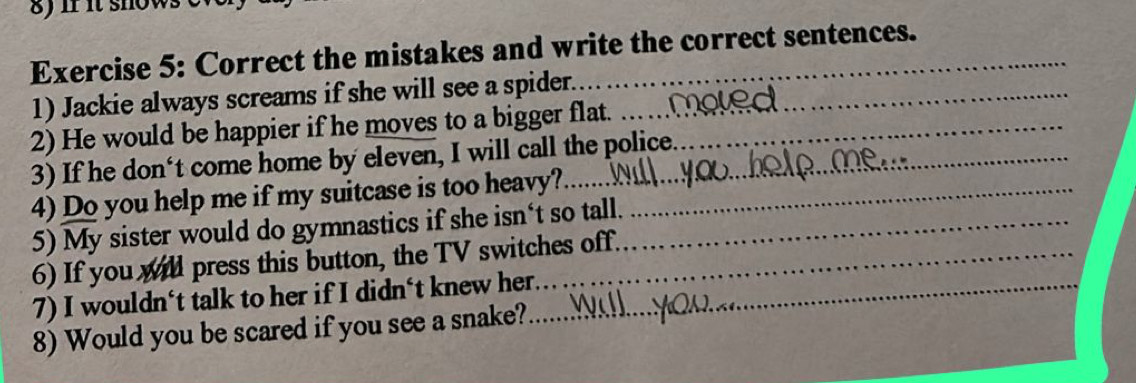 8) If it snows every day
Exercise 5: Correct the mistakes and write the correct sentences.
1) Jackie always screams if she will see a spider.
2) He would be happier if he moves to a bigger flat. moved
3) If he don‘t come home by eleven, I will call the police.
4) Do you help me if my suitcase is too heavy? Will you help me...
5) My sister would do gymnastics if she isn‘t so tall.
6) If you will press this button, the TV switches off.
7) I wouldn‘t talk to her if I didn‘t knew her.
8) Would you be scared if you see a snake? Will you...